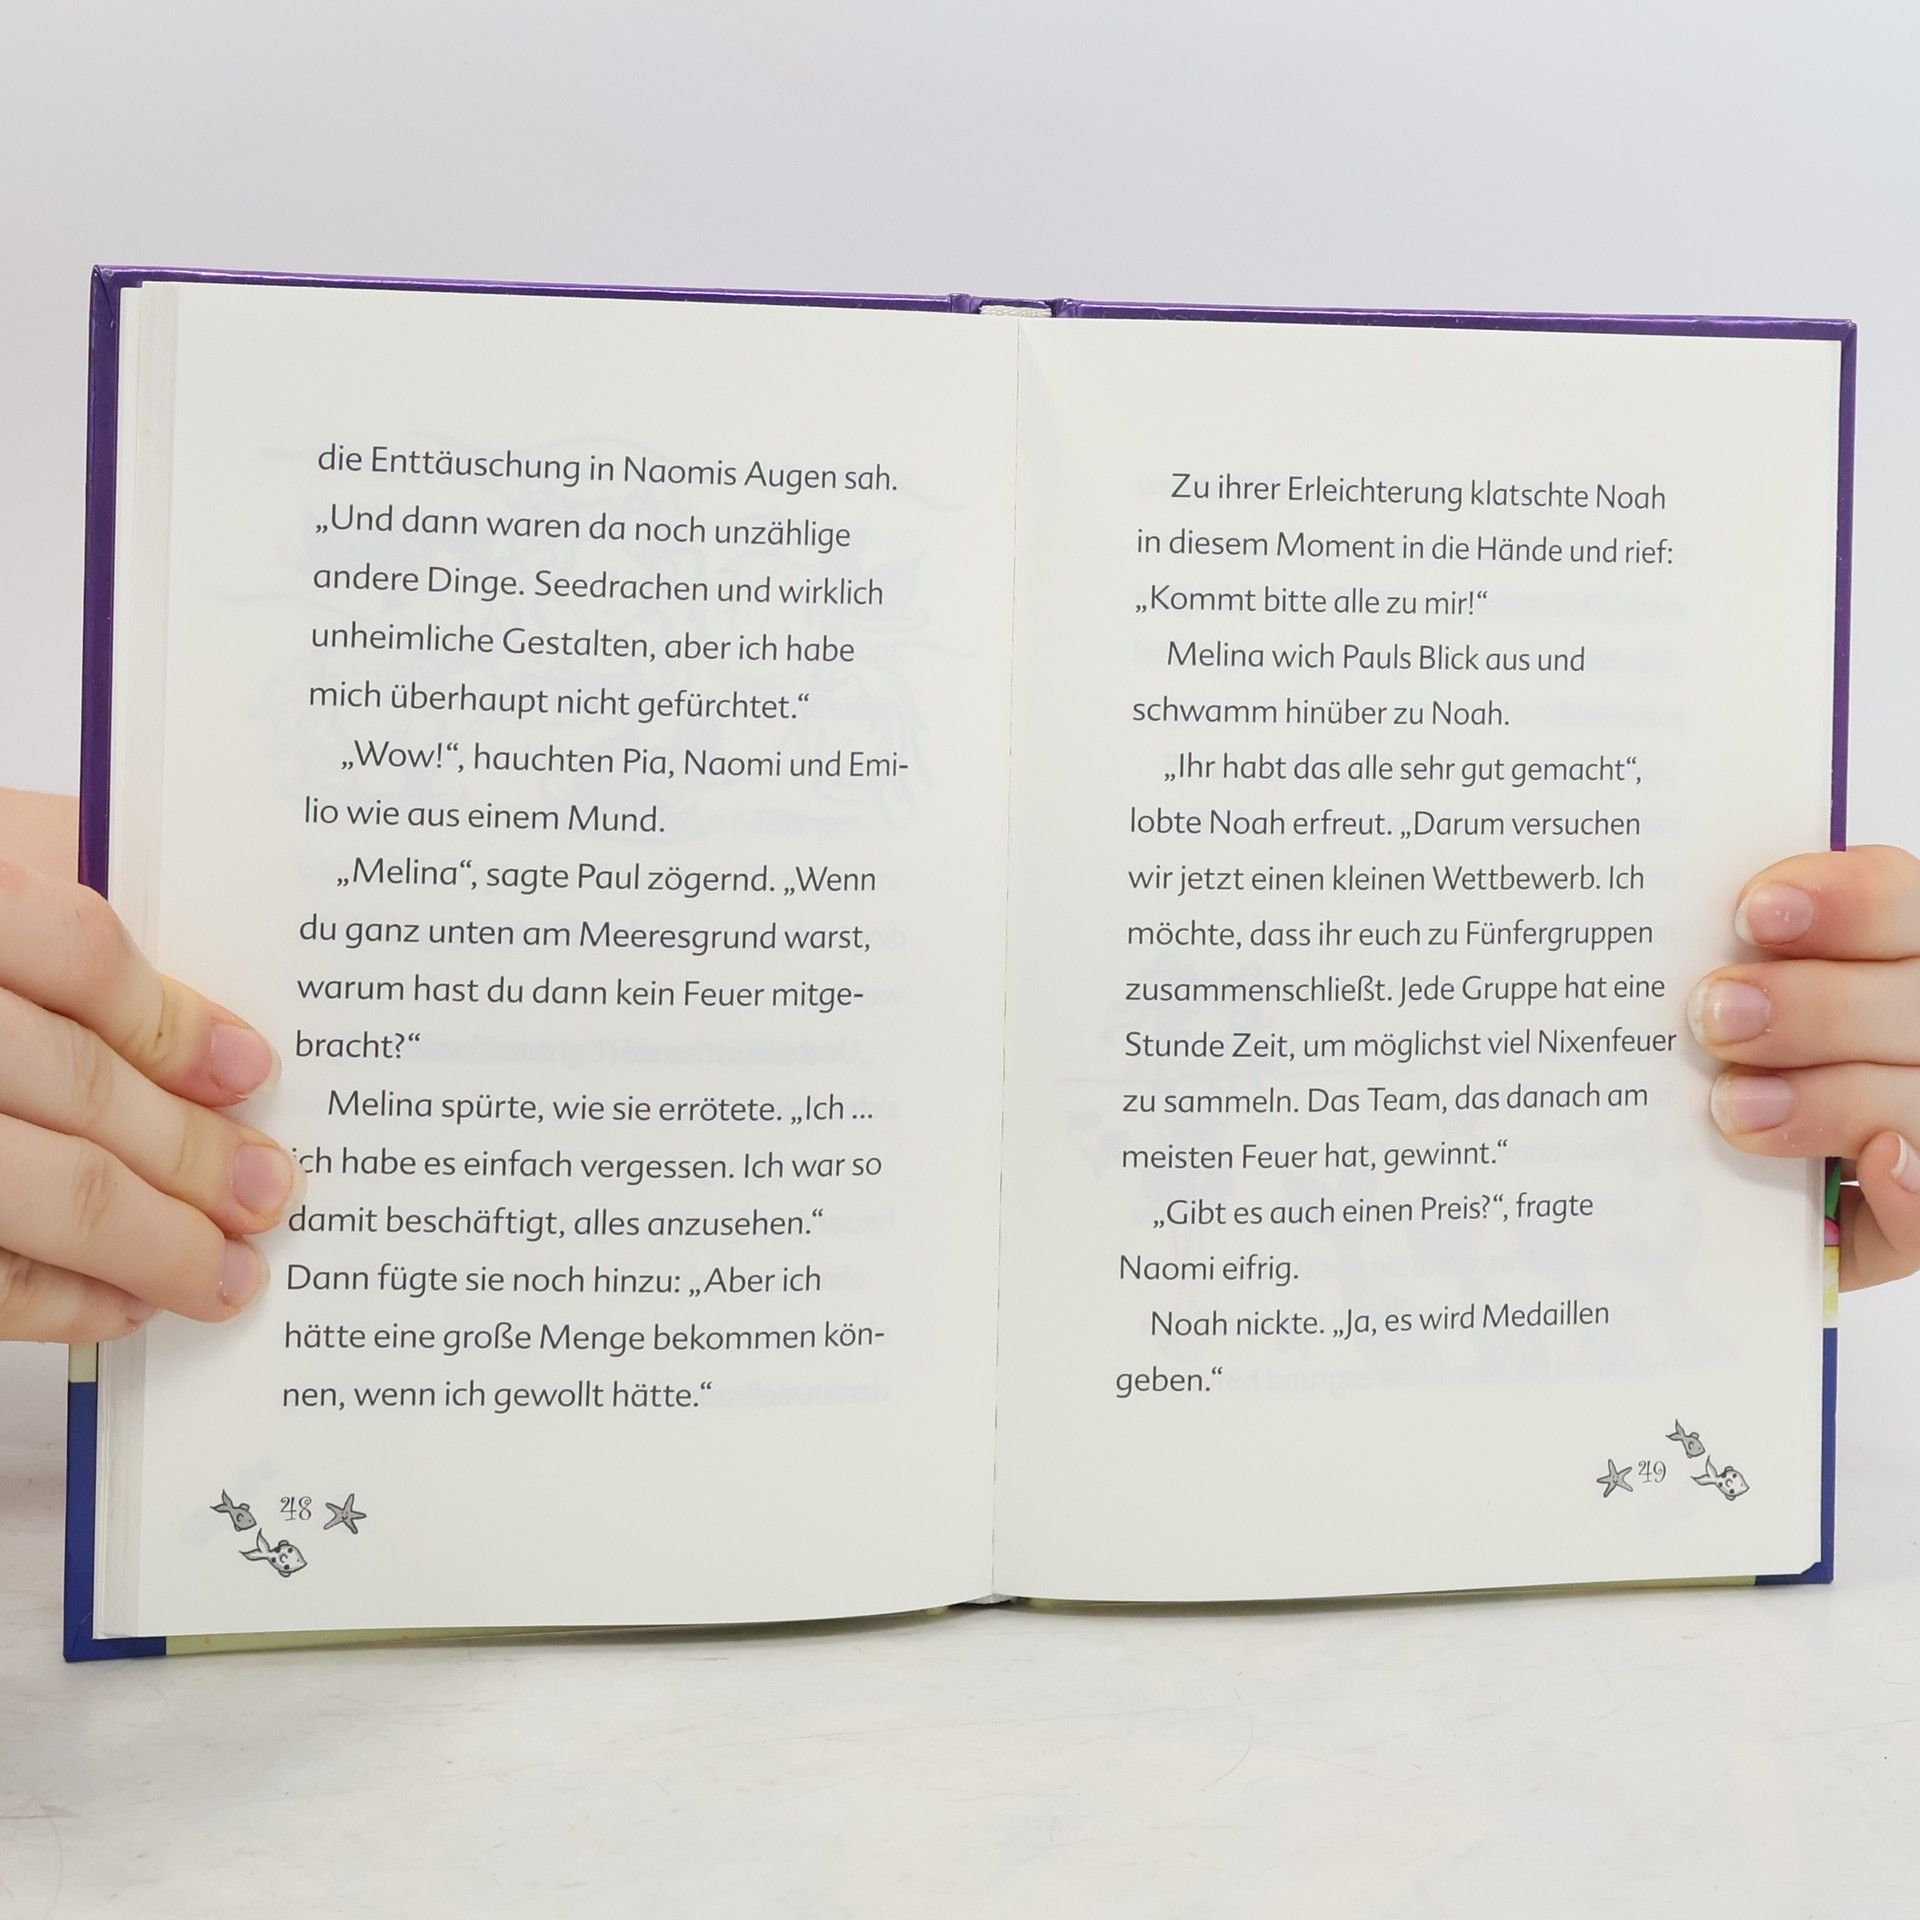 die Enttäuschung in Naomis Augen sah.
„Und dann waren da noch unzählige
andere Dinge. Seedrachen und wirklich
unheimliche Gestalten, aber ich habe
mich überhaupt nicht gefürchtet.“
„Wow!“, hauchten Pia, Naomi und Emi-
lio wie aus einem Mund.
„Melina“, sagte Paul zögernd. „Wenn
du ganz unten am Meeresgrund warst,
warum hast du dann kein Feuer mitge-
bracht?“
Melina spürte, wie sie errötete. „Ich ...
ich habe es einfach vergessen. Ich war so
damit beschäftigt, alles anzusehen.“
Dann fügte sie noch hinzu: „Aber ich
hätte eine große Menge bekommen kön-
nen, wenn ich gewollt hätte.“
48
Zu ihrer Erleichterung klatschte Noah
in diesem Moment in die Hände und rief:
„Kommt bitte alle zu mir!“
Melina wich Pauls Blick aus und
schwamm hinüber zu Noah.
„Ihr habt das alle sehr gut gemacht“,
lobte Noah erfreut. „Darum versuchen
wir jetzt einen kleinen Wettbewerb. Ich
möchte, dass ihr euch zu Fünfergruppen
zusammenschließt. Jede Gruppe hat eine
Stunde Zeit, um möglichst viel Nixenfeuer
zu sammeln. Das Team, das danach am
meisten Feuer hat, gewinnt.“
„Gibt es auch einen Preis?“, fragte
Naomi eifrig.
Noah nickte. „Ja, es wird Medaillen
geben.“
49